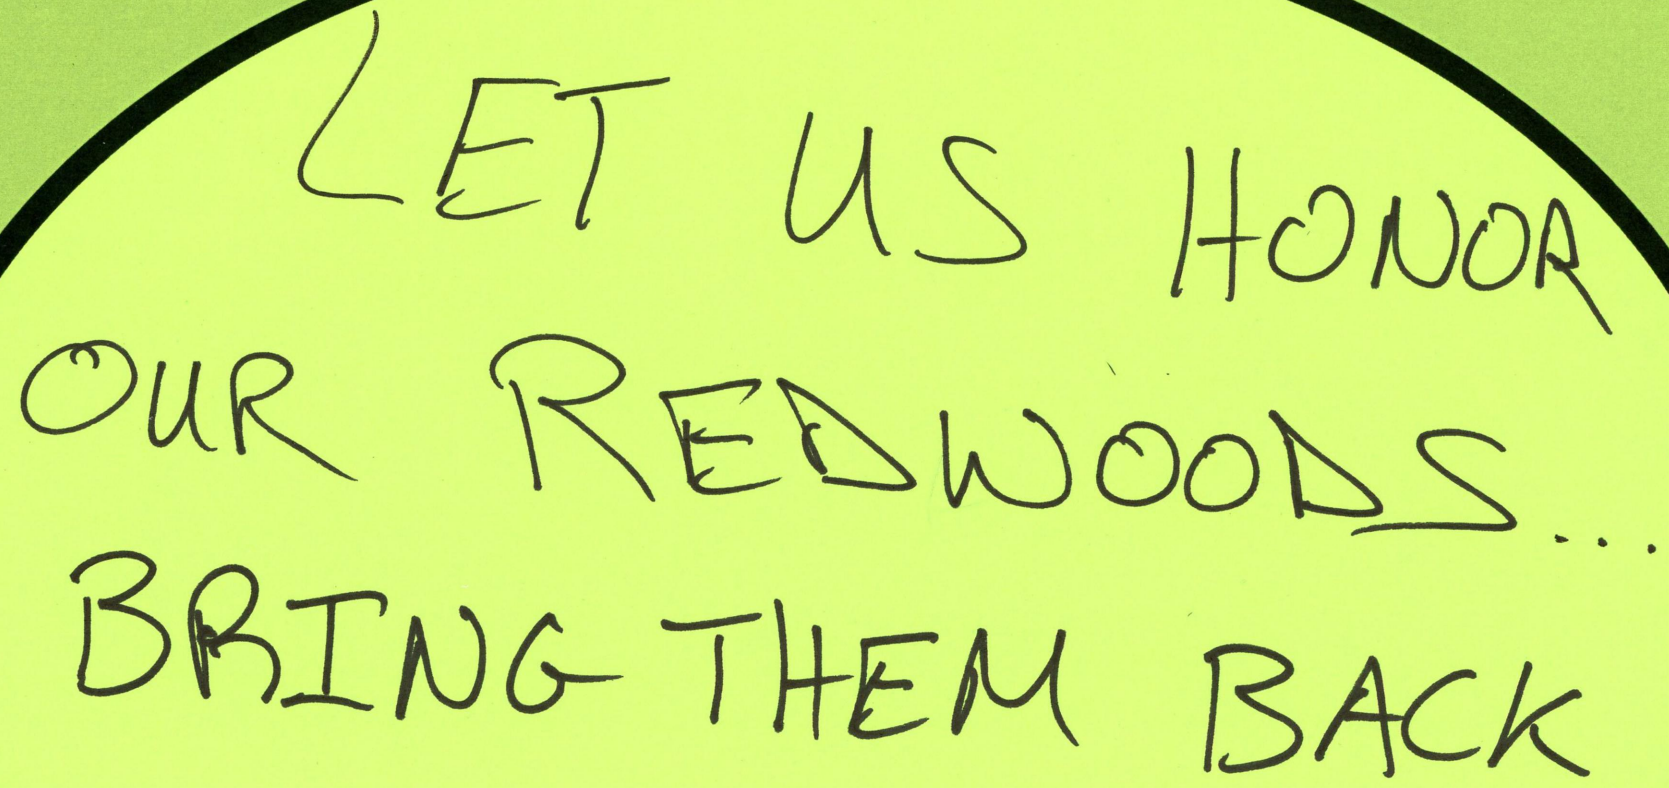 LET US HONOR
OUR REDWOODS...
BRING THEM BACK